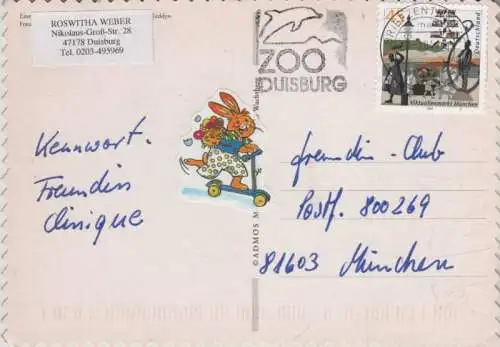 ROSWITHA WEBER
Nikolaus-Groß-Str. 28
47178 Duisburg
Tel. 0203-495969
ZOO
DUISBURG
Deutschland
Viktualienmarkt München
Kennwort:
Freundin
clinique
freundin-Club
Postf. 800269
81603 München
©ADMOS M